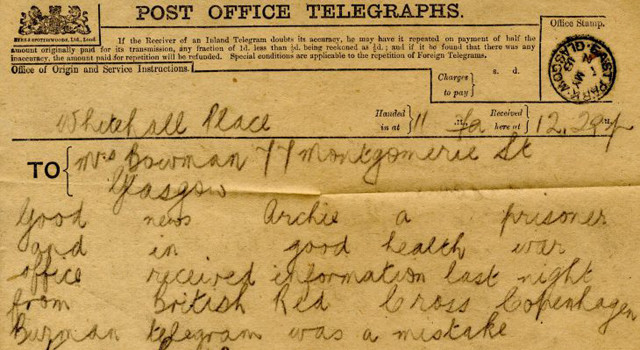 POST OFFICE TELEGRAPHS.
If the Receiver of an Inland Telegram doubts its accuracy, he may have it repeated on payment of half the
amount originally paid for its transmission, any fraction of 1d. less than ½d. being reckoned as ½d.; and if it be found that there was any
inaccuracy, the amount paid for repetition will be refunded. Special conditions are applicable to the repetition of Foreign Telegrams.
Office Stamp.
Office of Origin and Service Instructions.
Charges to pay } s. d.
EAST PARK GLASGOW
Whitehall Place
Handed in at } 11 Received here at } 12.29
TO { Mrs Bowman 77 Montgomerie St
Glasgow
Good news Archie a prisoner
and in good health war
office received information last night
from British Red Cross Copenhagen
Burman telegram was a mistake